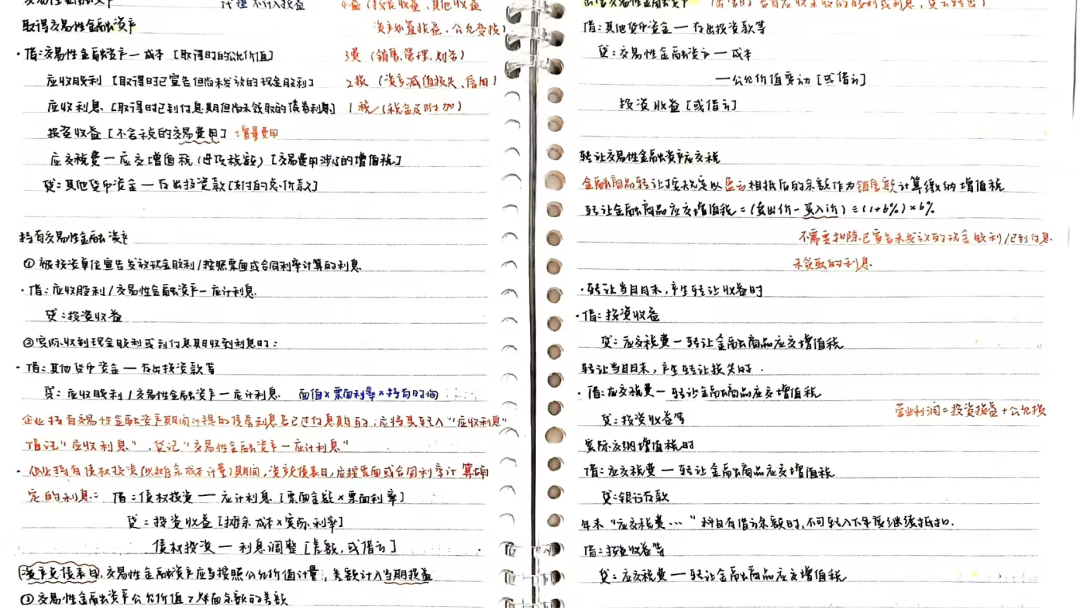 取得交易性金融资产
4益(投资收益、其他收益
资产处置收益、公允变损)
·借:交易性金融资产—成本[取得时的公允价值]
3费(销售、管理、财务)
应收股利[取得时已宣告但尚未发放的现金股利]
2损(资产减值损失、信用)
应收利息[取得时已到付息期但尚未领取的债券利息]
1税(税金及附加)
投资收益[不含税的交易费用]增量费用
应交税费—应交增值税(进项税额)[交易费用涉及的增值税]
贷:其他货币资金—存出投资款[支付的总价款]
持有交易性金融资产
①被投资单位宣告发放现金股利/按照票面或合同利率计算的利息
·借:应收股利/交易性金融资产—应计利息
贷:投资收益
②实际收到现金股利或到付息期收到利息时:
·借:其他货币资金—存出投资款等
贷:应收股利/交易性金融资产—应计利息 面值×票面利率×持有时间
企业持有交易性金融资产期间计提的债券利息若已过付息期的,应将其转入“应收利息”
借记“应收利息”,贷记“交易性金融资产—应计利息”
·企业持有债权投资(以摊余成本计量)期间,资产负债表日,应按票面或合同利率计算确
定的利息: 借:债权投资—应计利息[票面金额×票面利率]
贷:投资收益[摊余成本×实际利率]
债权投资—利息调整[差额,或借方]
·资产负债表日,交易性金融资产应当按照公允价值计量,差额计入当期损益
①交易性金融资产公允价值>账面余额的差额
借:其他货币资金—存出投资款等
贷:交易性金融资产—成本
—公允价值变动[或借方]
投资收益[或借方]
转让交易性金融资产应交税
金融商品转让按规定以盈亏相抵后的余额作为销售额计算缴纳增值税
转让金融商品应交增值税=(卖出价-买入价)÷(1+6%)×6%
不需要扣除已宣告未发放的现金股利/已到付息
未领取的利息
·转让当月月末,产生转让收益时
·借:投资收益
贷:应交税费—转让金融商品应交增值税
转让当月末,产生转让损失时.
·借:应交税费—转让金融商品应交增值税
贷:投资收益等
营业利润=投资损益+公允损
实际交纳增值税时
借:应交税费—转让金融商品应交增值税
贷:银行存款
年末“应交税费…”科目有借方余额时,不可转入下年度继续抵扣.
借:投资收益等
贷:应交税费—转让金融商品应交增值税